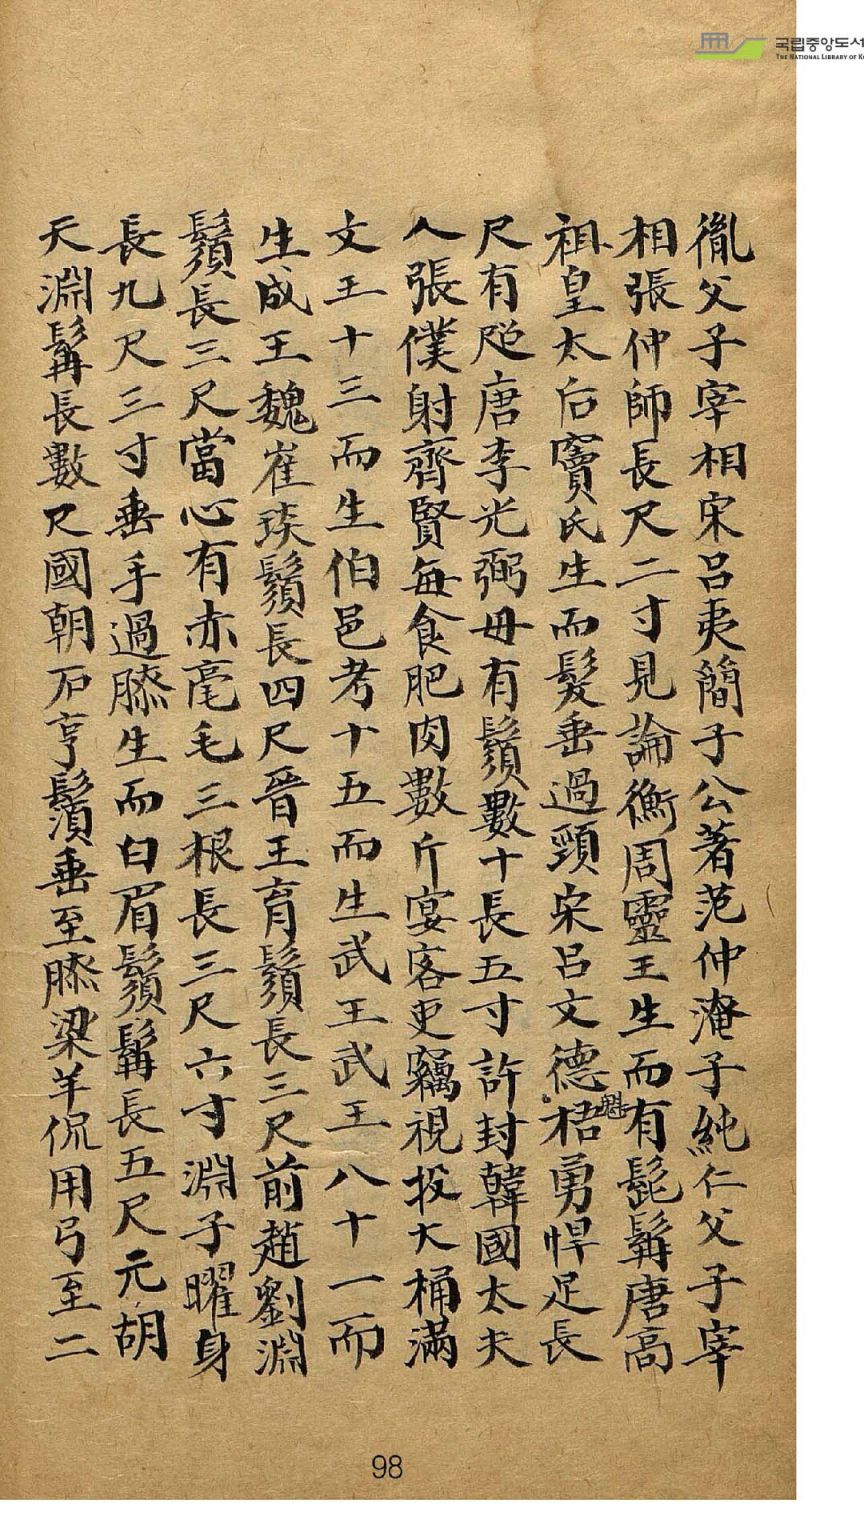 胤父子宰相宋呂夷簡子公著范仲淹子純仁父子宰
相張仲師長尺二寸見論衡周靈王生而有髭髯唐高
祖皇太后竇氏生而髮垂過頸宋呂文德魁梧勇悍足長
尺有咫唐李光弼母有鬚數十長五寸許封韓國太夫
人張僕射齊賢每食肥肉數斤宴客吏竊視投大桶滿
文王十三而生伯邑考十五而生武王武王八十一而
生成王魏崔琰鬚長四尺晉王育鬚長三尺前趙劉淵
鬚長三尺當心有赤毫毛三根長三尺六寸淵子曜身
長九尺三寸垂手過膝生而白眉鬚髯長五尺元胡
天淵髯長數尺國朝石亨鬚垂至膝梁羊侃用弓至二
98
국립중앙도서
THE NATIONAL LIBRARY OF K